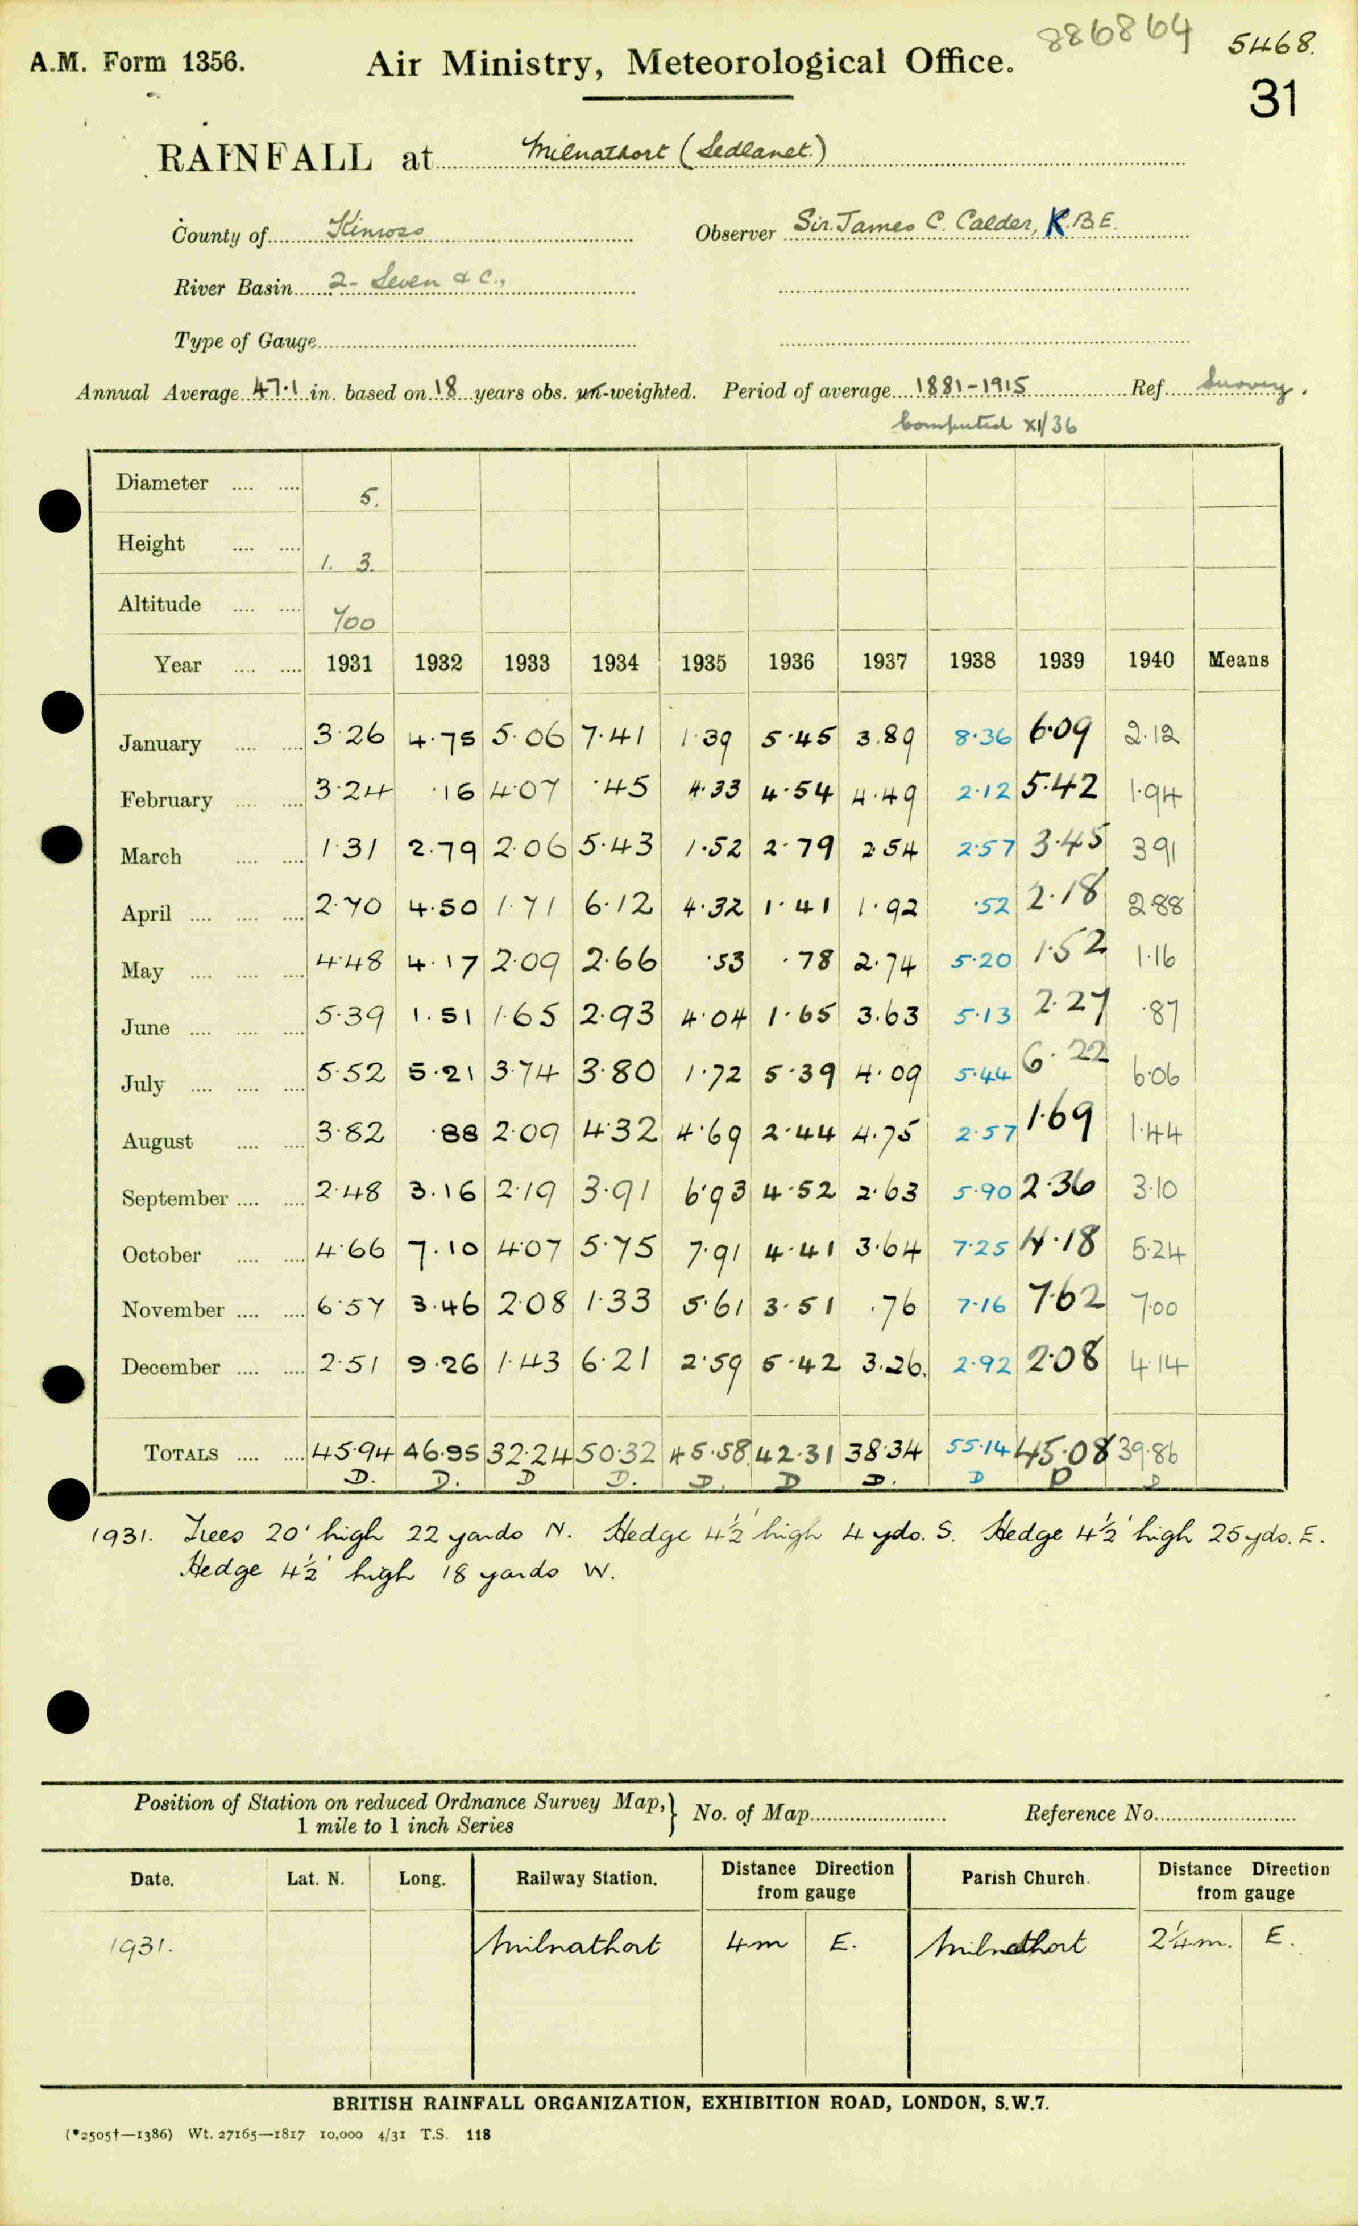 886864 5468.
A.M. Form 1356. Air Ministry, Meteorological Office.
31
RAINFALL at Milnathort (Ledlanet.)
County of Kinross Observer Sir. James C. Calder, K.B.E.
River Basin 2- Leven & C.,
Type of Gauge
Annual Average 47.1 in. based on 18 years obs. un-weighted. Period of average 1881-1915 Ref. Survey.
Computed XI/36
Diameter 5.
Height 1. 3.
Altitude 700
Year 1931 1932 1933 1934 1935 1936 1937 1938 1939 1940 Means
January 3.26 4.75 5.06 7.41 1.39 5.45 3.89 8.36 6.09 2.12
February 3.24 .16 4.07 .45 4.33 4.54 4.49 2.12 5.42 1.94
March 1.31 2.79 2.06 5.43 1.52 2.79 2.54 2.57 3.45 3.91
April 2.70 4.50 1.71 6.12 4.32 1.41 1.92 .52 2.18 2.88
May 4.48 4.17 2.09 2.66 .53 .78 2.74 5.20 1.52 1.16
June 5.39 1.51 1.65 2.93 4.04 1.65 3.63 5.13 2.27 .87
July 5.52 5.21 3.74 3.80 1.72 5.39 4.09 5.44 6.22 6.06
August 3.82 .88 2.09 4.32 4.69 2.44 4.75 2.57 1.69 1.44
September 2.48 3.16 2.19 3.91 6.93 4.52 2.63 5.90 2.36 3.10
October 4.66 7.10 4.07 5.75 7.91 4.41 3.64 7.25 4.18 5.24
November 6.57 3.46 2.08 1.33 5.61 3.51 .76 7.16 7.62 7.00
December 2.51 9.26 1.43 6.21 2.59 5.42 3.26. 2.92 2.08 4.14
TOTALS 45.94 46.95 32.24 50.32 45.58 42.31 38.34 55.14 45.08 39.86
D. D. D D. D. D D. D D D
1931. Trees 20' high 22 yards N. Hedge 4½' high 4 yds. S. Hedge 4½' high 25 yds. E.
Hedge 4½' high 18 yards W.
Position of Station on reduced Ordnance Survey Map, } No. of Map Reference No.
1 mile to 1 inch Series
Date. Lat. N. Long. Railway Station. Distance Direction from gauge Parish Church. Distance Direction from gauge
1931. Milnathort 4m E. Milnathort 2¼m. E.
BRITISH RAINFALL ORGANIZATION, EXHIBITION ROAD, LONDON, S.W.7.
(*2505†—1386) Wt. 27165—1817 10,000 4/31 T.S. 118